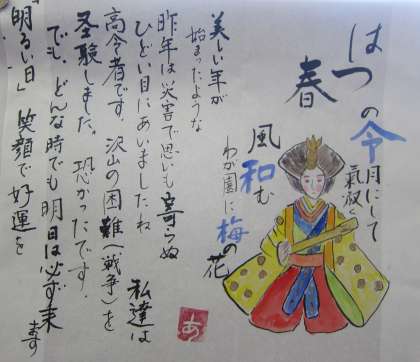 はつ
春
の令月にして
氣淑く
風和む
わが園に梅の花
美しい年が
始まったような
昨年は災害で思いも寄らぬ
ひどい目にあいましたね 私達は
高令者です。沢山の困難(戦争)を
圣験しました。恐かったです。
でも、どんな時でも明日は必ず来寿
「明るい日」笑顔で好運を
あ